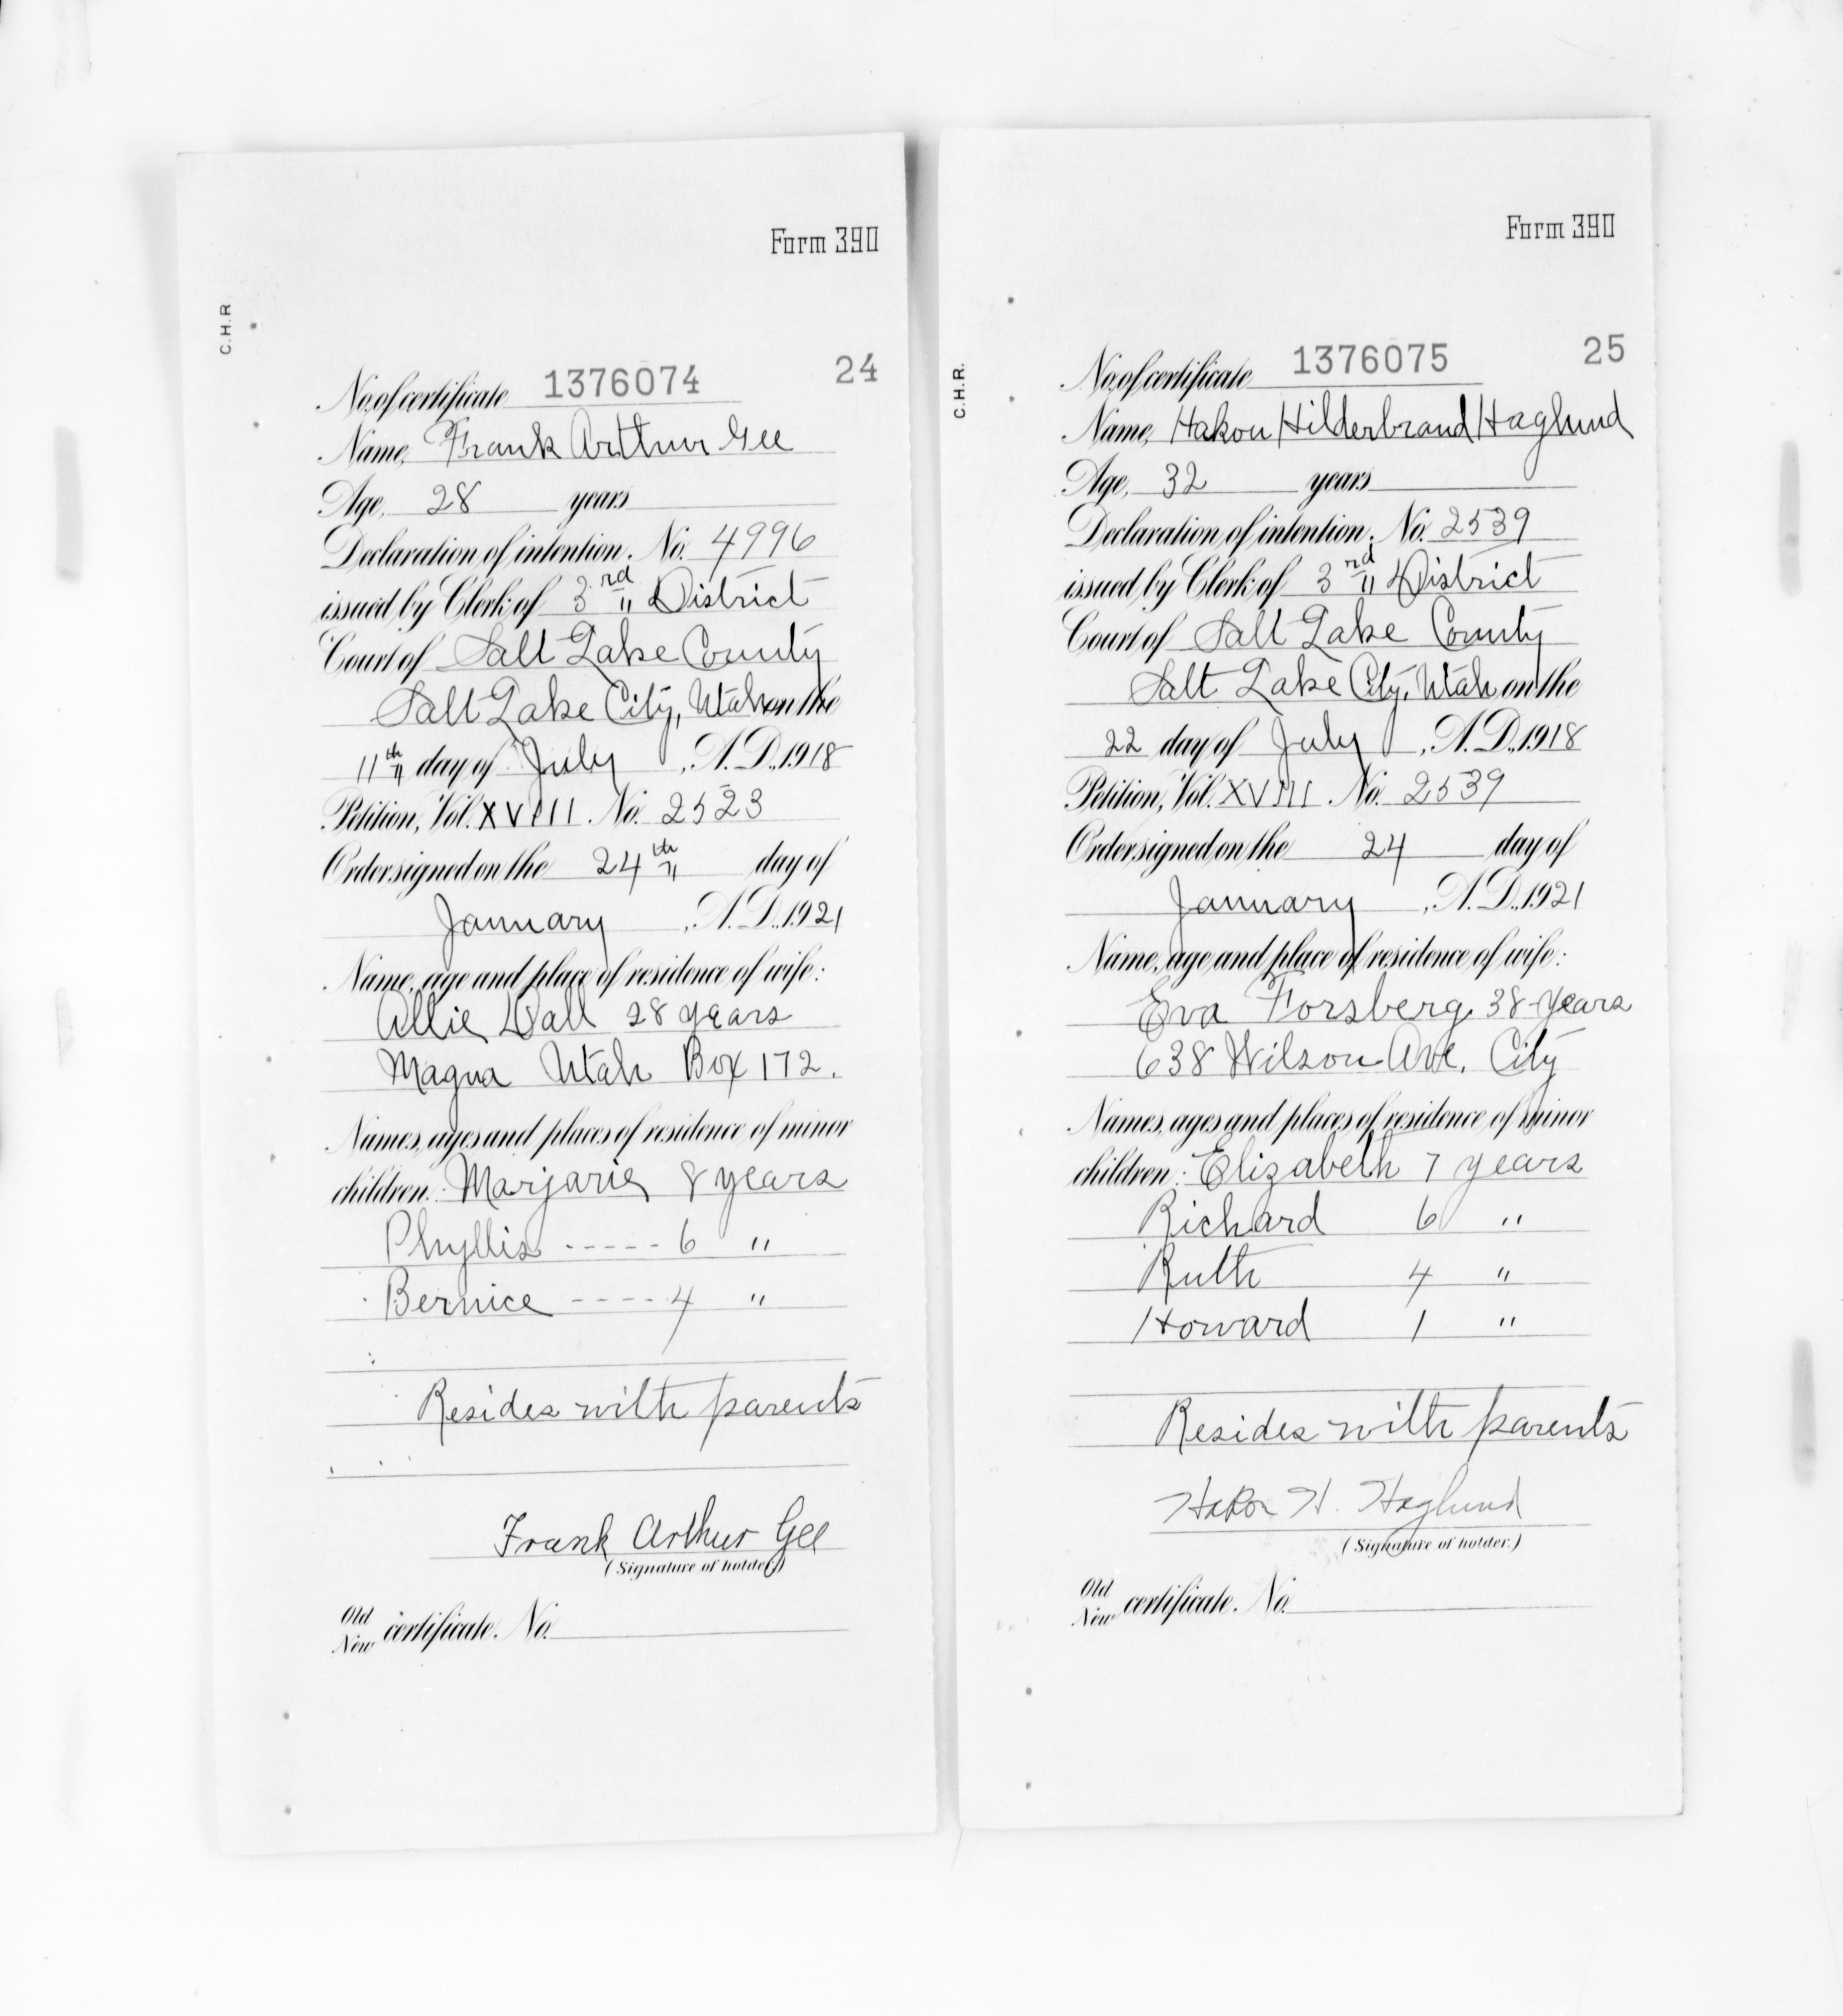 Form 390
C.H.R
24
No. of certificate 1376074
Name, Frank Arthur Gee
Age, 28 years
Declaration of intention. No. 4996
issued by Clerk of 3rd District
Court of Salt Lake County
Salt Lake City, Utah on the
11th day of July, A.D., 1918
Petition, Vol. XVIII. No. 2523
Order signed on the 24th day of
January, A.D., 1921
Name, age and place of residence of wife:
Allie Dall 28 years
Magna Utah Box 172.
Names, ages and places of residence of minor
children: Marjarie 8 years
Phyllis ----- 6 "
Bernice ---- 4 "
Resides with parents
Frank Arthur Gee
(Signature of holder)
Old
New certificate. No.
Form 390
C.H.R.
25
No. of certificate 1376075
Name, Hakon Hilderbrand Haglund
Age, 32 years
Declaration of intention. No. 2539
issued by Clerk of 3rd District
Court of Salt Lake County
Salt Lake City, Utah on the
22 day of July, A.D., 1918
Petition, Vol. XVIII. No. 2539
Order signed on the 24 day of
January, A.D., 1921
Name, age and place of residence of wife:
Eva Forsberg 38 years
638 Wilson Ave. City
Names, ages and places of residence of minor
children: Elizabeth 7 years
Richard 6 "
Ruth 4 "
Howard 1 "
Resides with parents
Hakon H. Haglund
(Signature of holder.)
Old
New certificate. No.